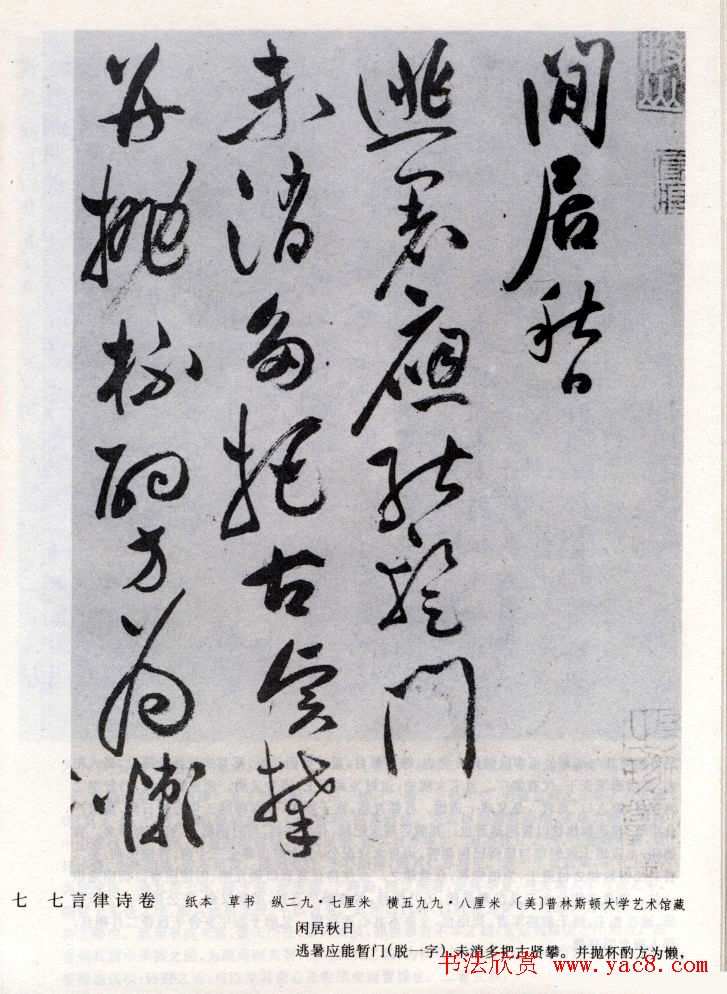 閒居秋日
逃暑應能暫門
未消多把古賢攀
并拋杯酌方為懶
七 七言律诗卷 纸本 草书 纵二九·七厘米 横五九九·八厘米 〔美〕普林斯顿大学艺术馆藏
闲居秋日
逃暑应能暂门(脱一字),未消多把古贤攀。并抛杯酌方为懒,
书法欣赏 www.yac8.com